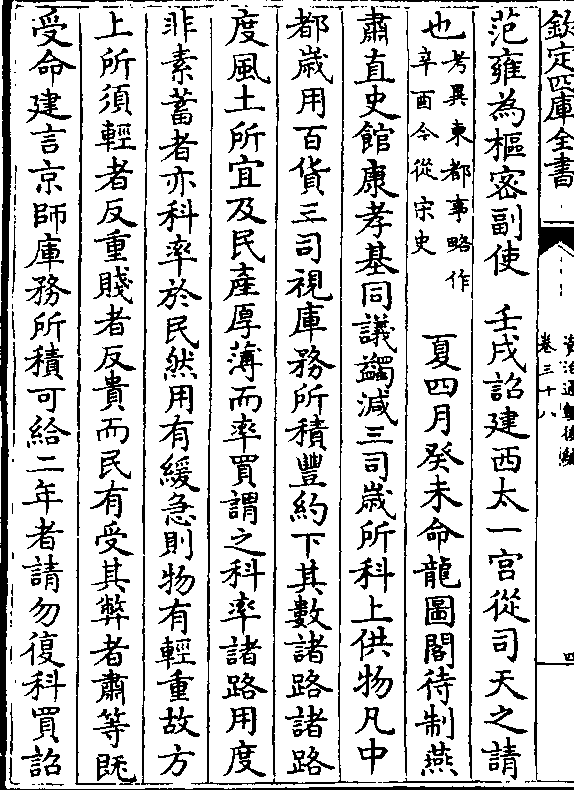 欽定四庫全書
資治通鑑後編
卷三十八
四
范雍為樞密副使　壬戌詔建西太一宮從司天之請
也
考異東都事略作
辛酉今從宋史
夏四月癸未命龍圖閣待制燕
肅直史館康孝基同議蠲減三司歲所科上供物凡中
都歲用百貨三司視庫務所積豐約下其數諸路諸路
度風土所宜及民產厚薄而率買謂之科率諸路用度
非素蓄者亦科率於民然用有緩急則物有輕重故方
上所須輕者反重賤者反貴而民有受其弊者肅等既
受命建言京師庫務所積可給二年者請勿復科買詔